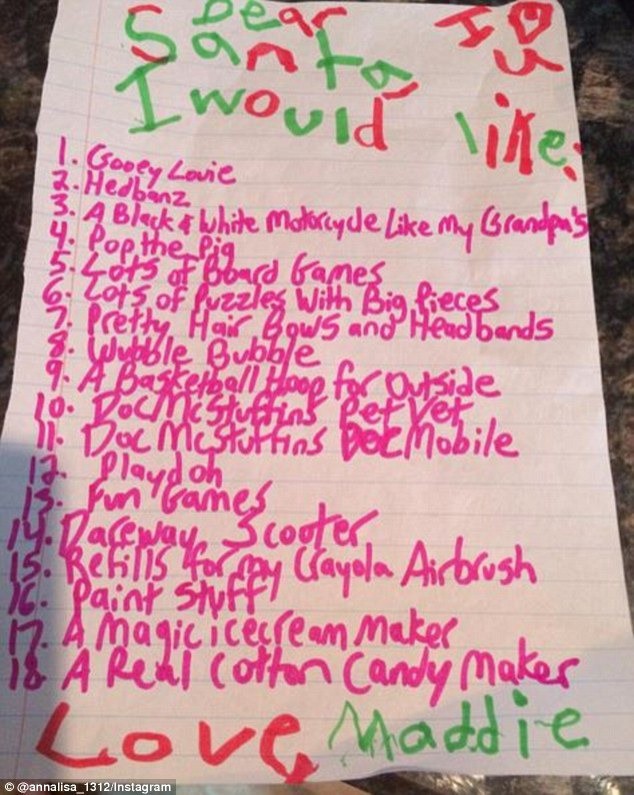 Dear
Santa, I ♡ u
I would like:
1. Gooey Louie
2. Hedbanz
3. A Black & White Motorcycle Like My Grandpa's
4. Pop the Pig
5. Lots of Board Games
6. Lots of Puzzles With Big Pieces
7. Pretty Hair Bows and Headbands
8. Wubble Bubble
9. A Basketball Hoop for Outside
10. Doc McStuffins Pet Vet
11. Doc McStuffins Doc Mobile
12. Playdoh
13. Fun Games
14. Dareway Scooter
15. Refills for my Crayola Airbrush
16. Paint Stuff
17. A Magic icecream Maker
18. A Real Cotton Candy Maker
Love, Maddie
© @annalisa_1312/Instagram